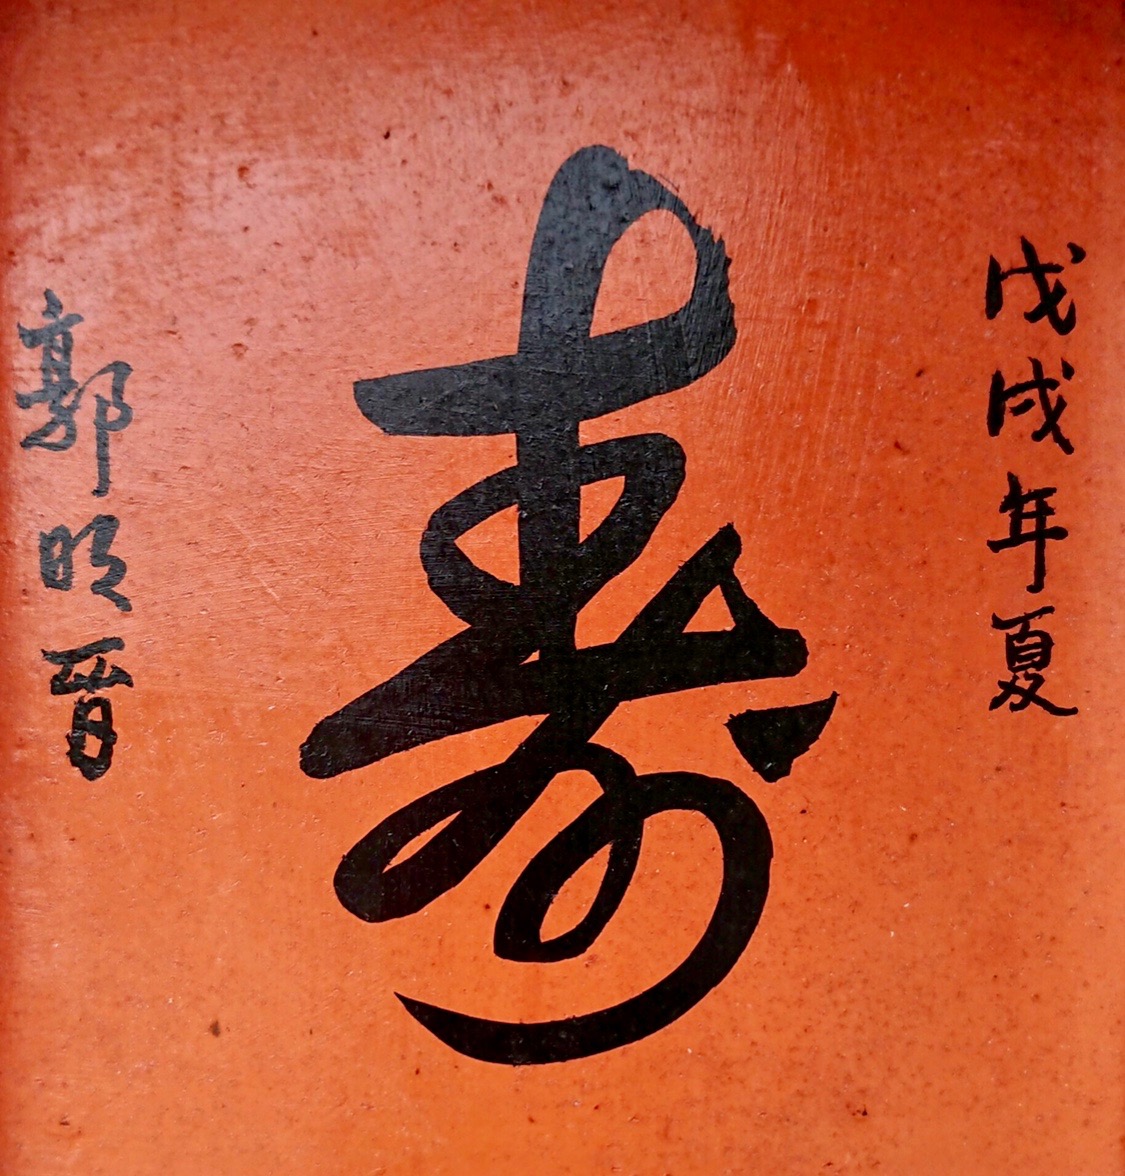 戊戌年夏
寿
郭明晉